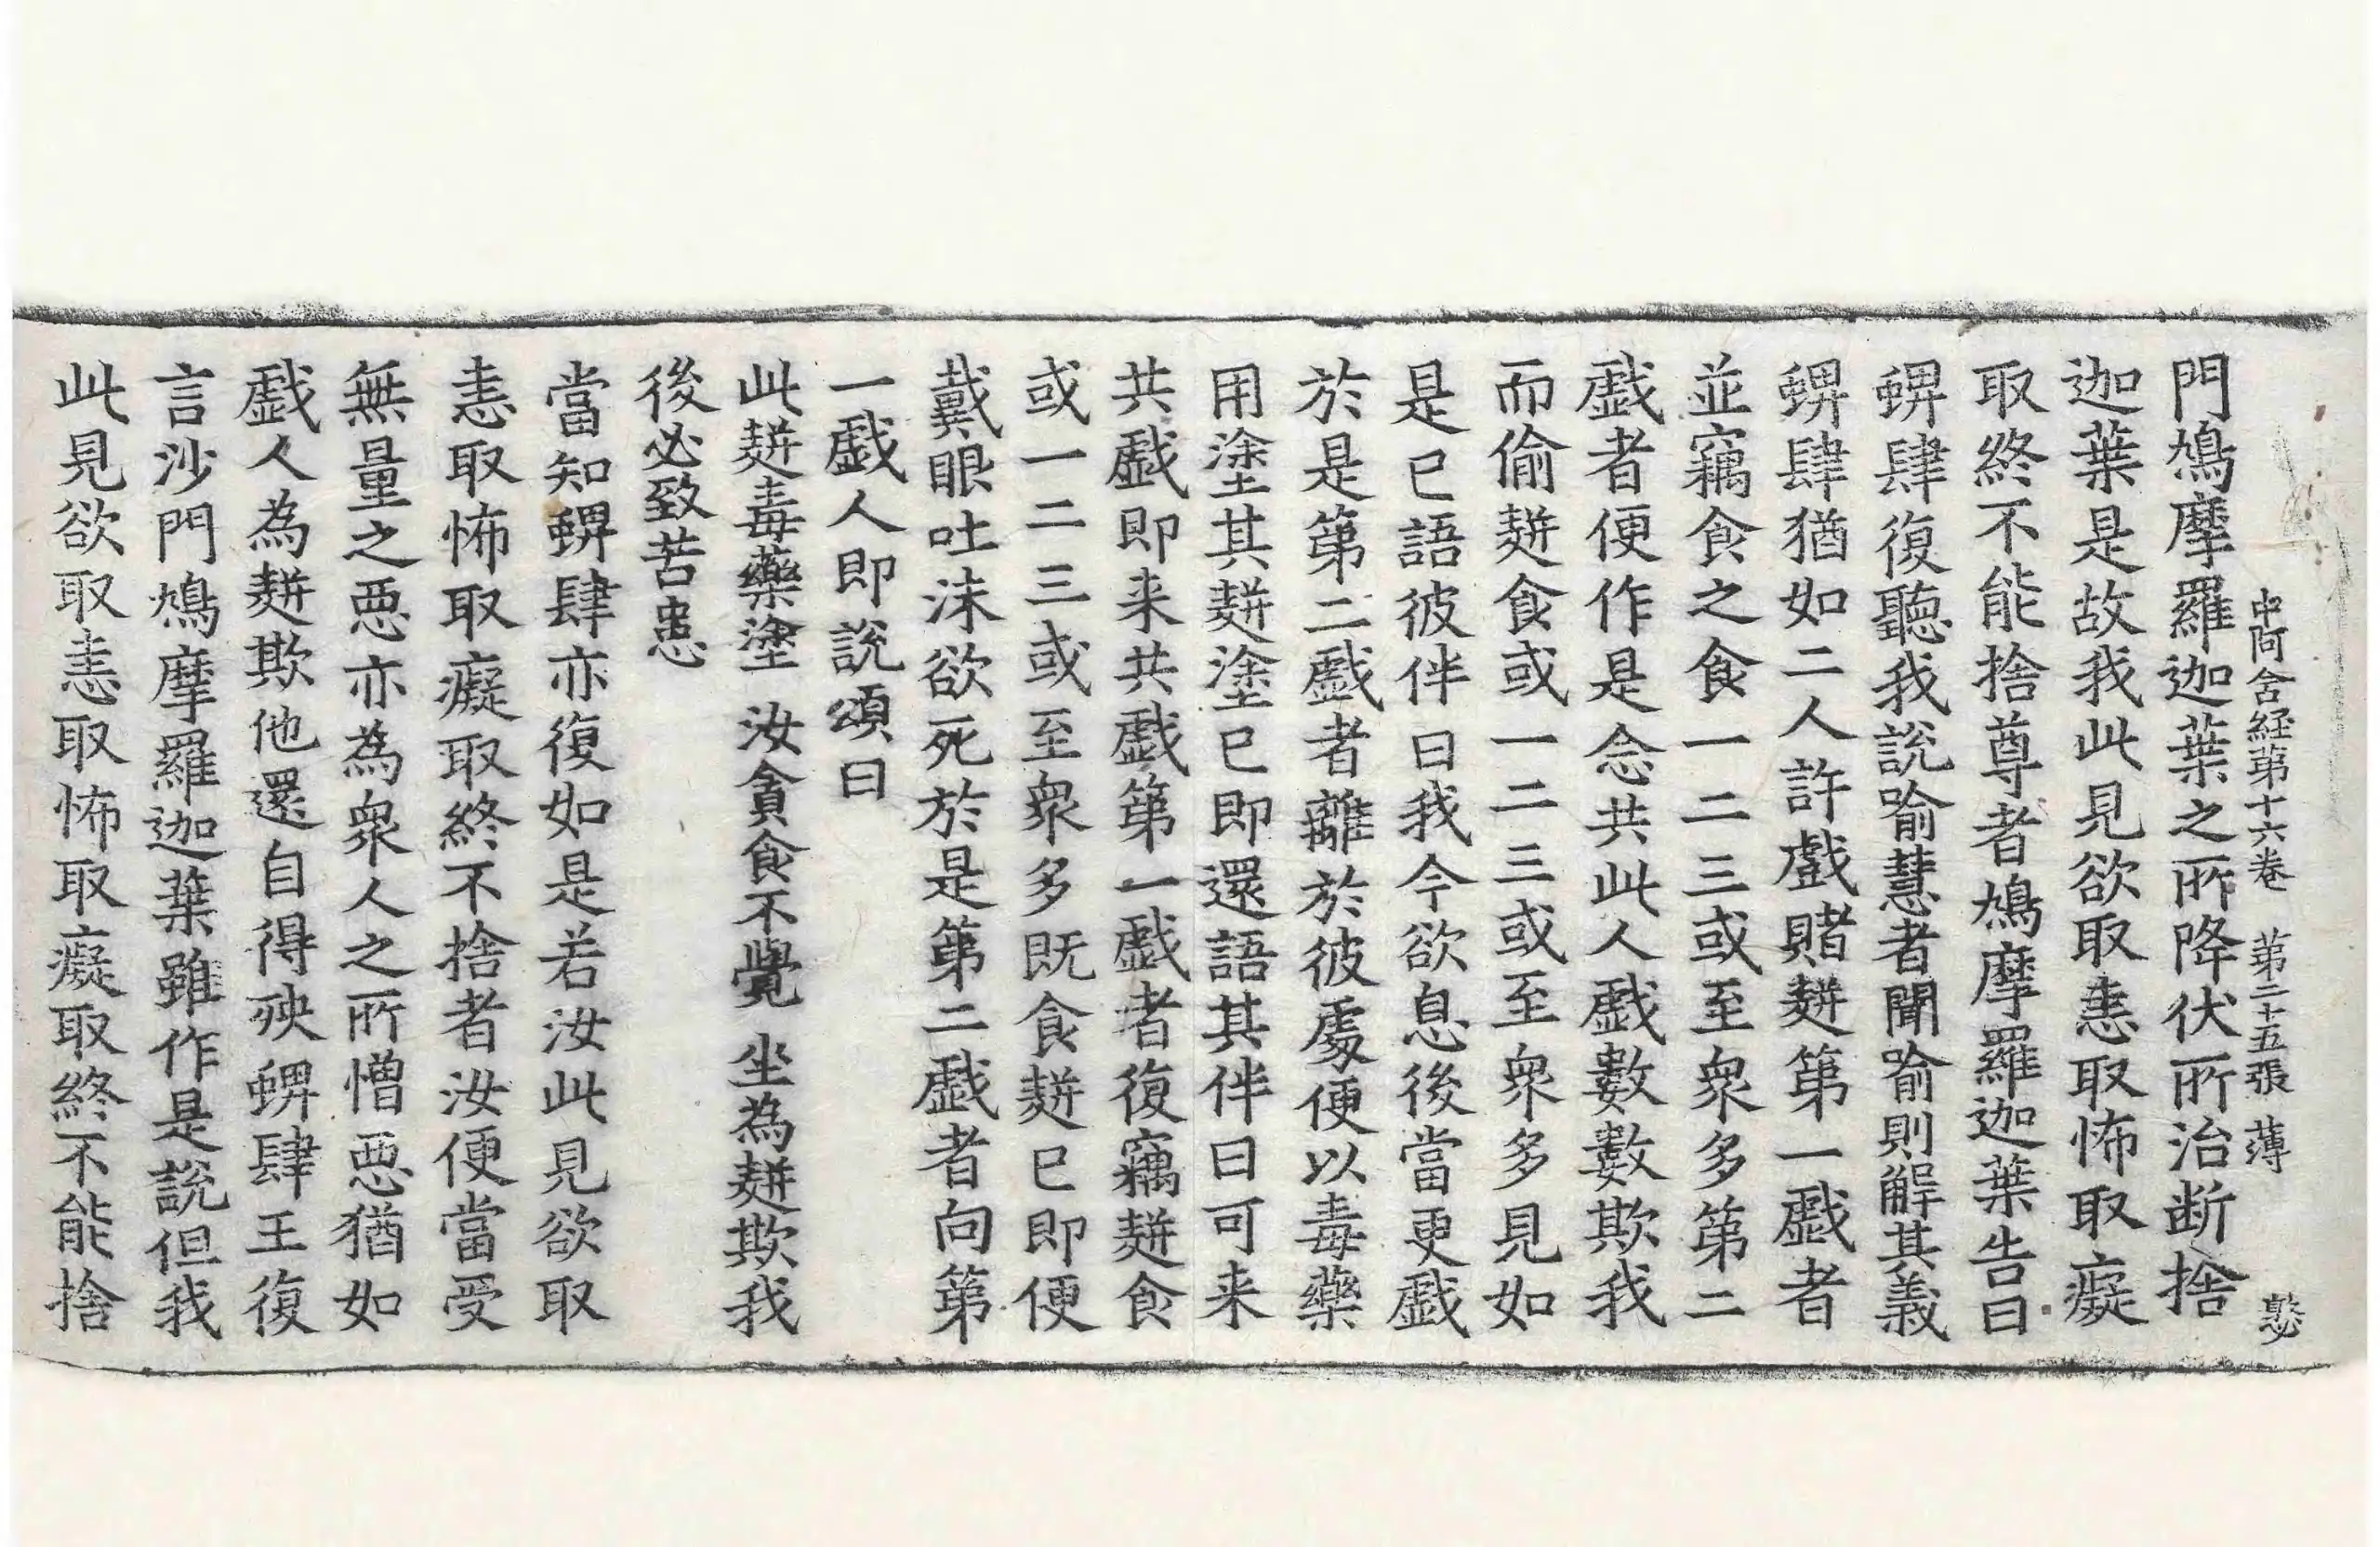 中阿含経第十六卷 第二十五張 薄 慜
門鳩摩羅迦葉之所降伏所治断捨
迦葉是故我此見欲取恚取怖取癡
取終不能捨尊者鳩摩羅迦葉告曰
蜱肆復聽我說喻慧者聞喻則解其義
蜱肆猶如二人許戲賭麨第一戱者
並竊食之食一二三或至衆多第二
戱者便作是念共此人戱數數欺我
而偷麨食或一二三或至衆多見如
是已語彼伴曰我今欲息後當更戱
於是第二戱者離於彼處便以毒藥
用塗其麨塗已即還語其伴曰可来
共戱即来共戱第一戱者復竊麨食
或一二三或至衆多既食麨已即便
戴眼吐沫欲死於是第二戱者向第
一戱人即說頌曰
此麨毒藥塗 汝貪食不覺 坐為麨欺我
後必致苦患
當知蜱肆亦復如是若汝此見欲取
恚取怖取癡取終不捨者汝便當受
無量之惡亦為衆人之所憎惡猶如
戱人為麨欺他還自得殃蜱肆王復
言沙門鳩摩羅迦葉雖作是說但我
此見欲取恚取怖取癡取終不能捨